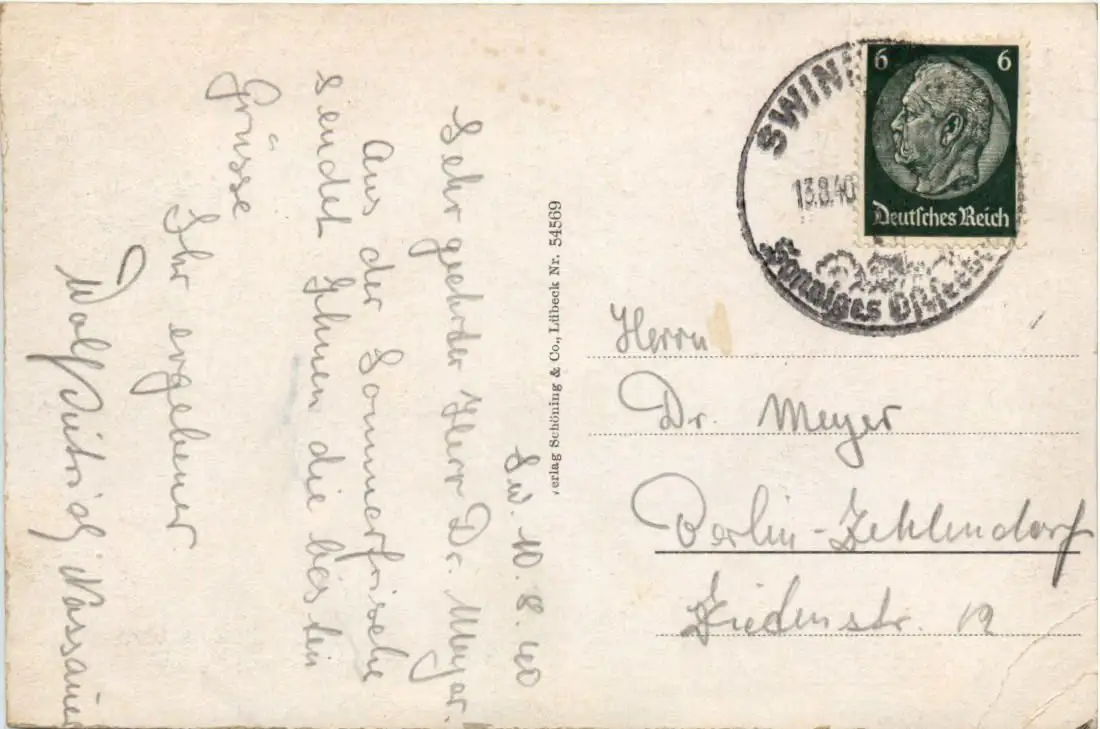 Sw. 10.8.40
Sehr geehrter Herr Dr. Meyer!
Aus der Sommerfrische
sendet Ihnen die besten
Grüsse
Ihr ergebener
Nassauer
Verlag Schöning & Co., Lübeck Nr. 54569
SWIN
13.8.40
Sonniges Ostseeb
6 6
Deutsches Reich
Herrn
Dr. Meyer
Berlin-Zehlendorf
12